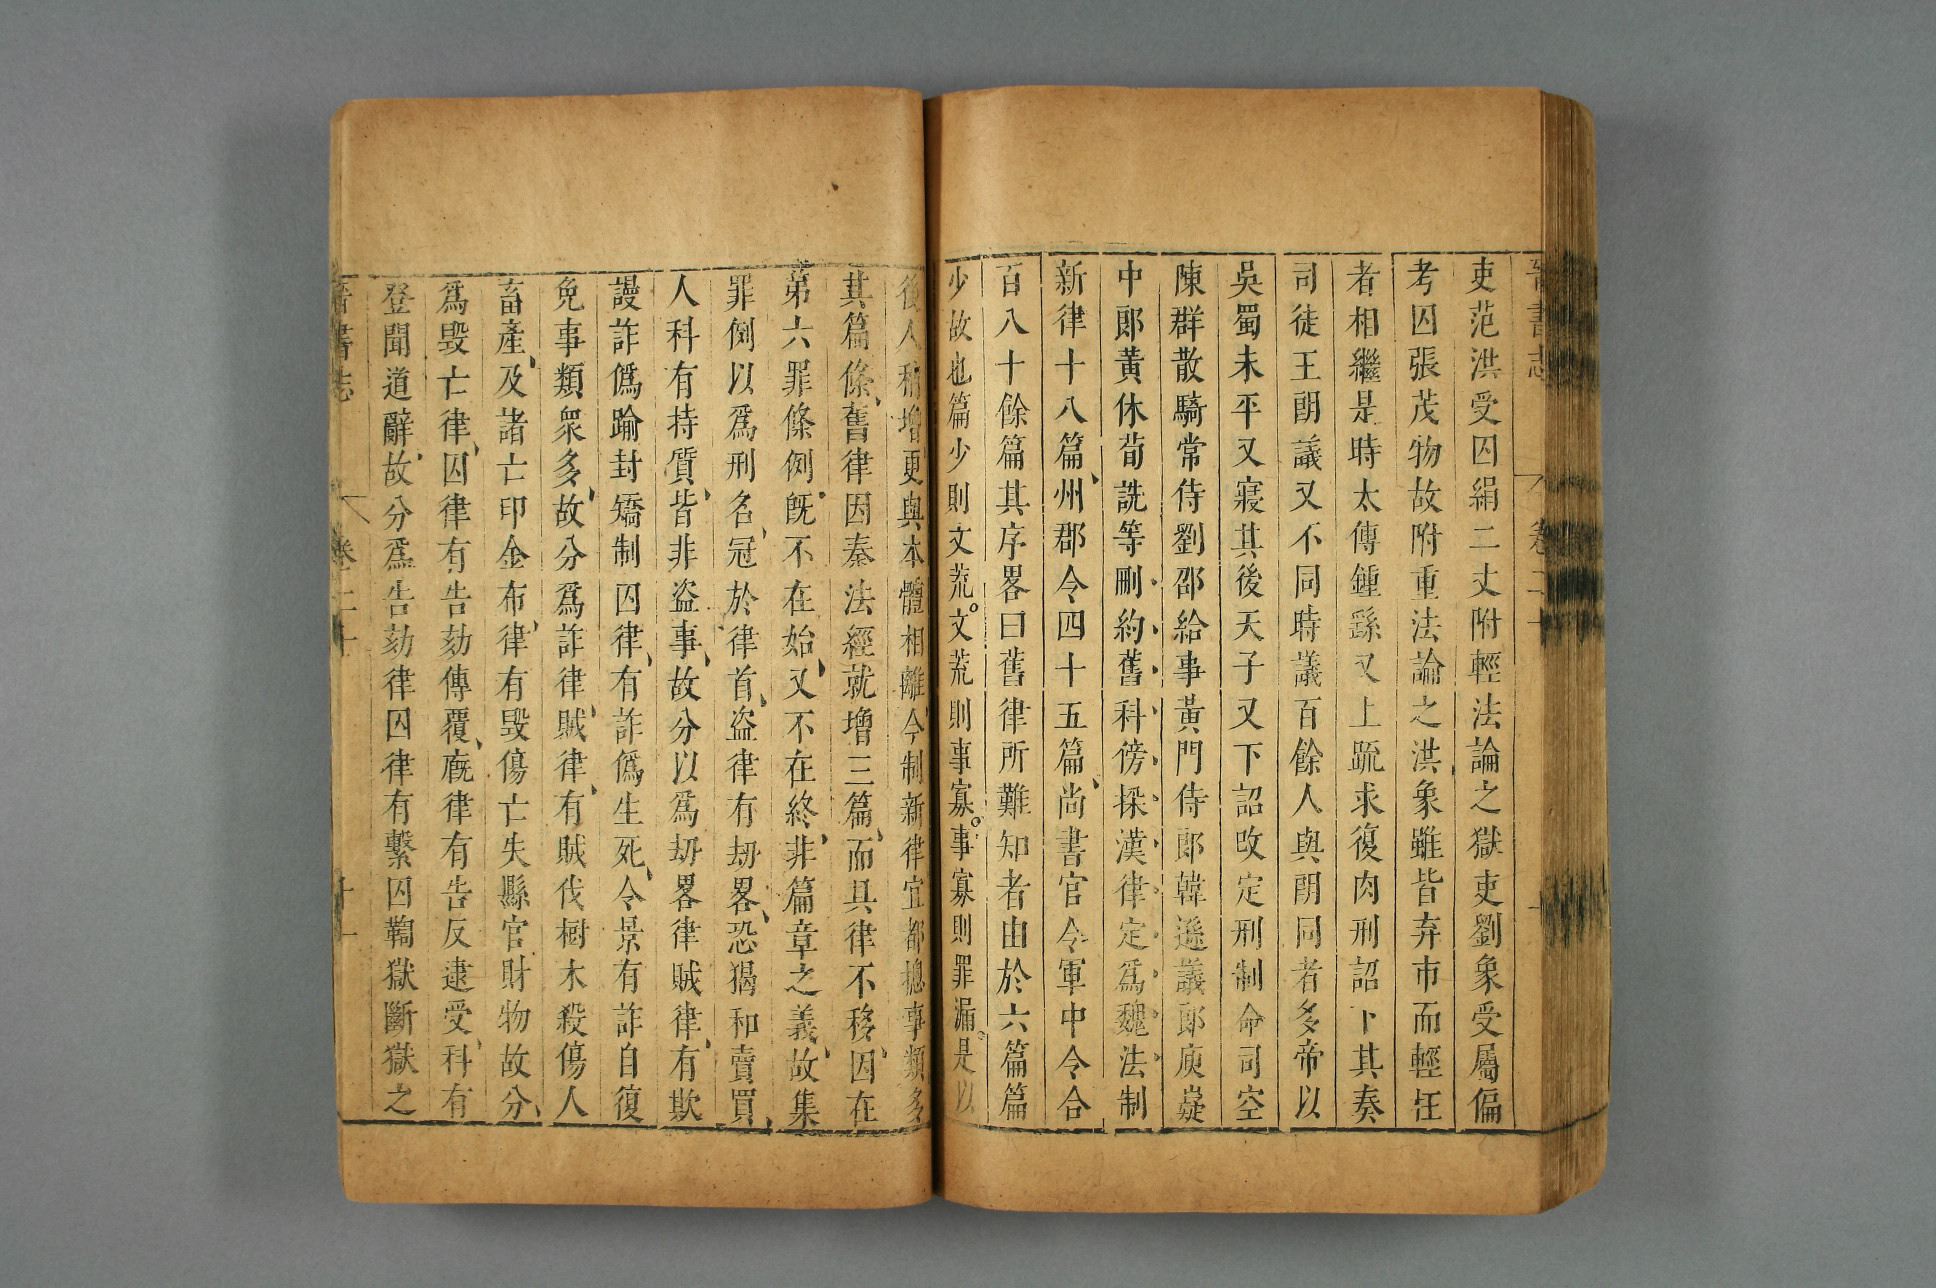 吏范洪受囚絹二丈附輕法論之獄吏劉象受屬偏
考囚張茂物故附重法論之洪象雖皆弃市而輕枉
者相繼是時太傅鍾繇又上䟽求復肉刑詔下其奏
司徒王朗議又不同時議百餘人與朗同者多帝以
吳蜀未平又寢其後天子又下詔改定刑制命司空
陳群散騎常侍劉邵給事黃門侍郎韓遜議郎庾嶷
中郎黃休荀詵等刪約舊科傍採漢律定爲魏法制
新律十八篇州郡令四十五篇尚書官令軍中令合
百八十餘篇其序畧曰舊律所難知者由於六篇篇
少故也篇少則文荒文荒則事寡事寡則罪漏是以
後人稍增更與本體相離今制新律宜都摠事類多
其篇條舊律因秦法經就增三篇而具律不移因在
第六罪條例旣不在始又不在終非篇章之義故集
罪例以爲刑名冠於律首盜律有劫畧恐猲和賣買
人科有持質皆非盜事故分以爲劫畧律賊律有欺
謾詐僞踰封矯制囚律有詐僞生死令景有詐自復
免事類衆多故分爲詐律賊律有賊伐樹木殺傷人
畜產及諸亡印金布律有毀傷亡失縣官財物故分
爲毀亡律囚律有告劾傳覆廐律有告反逮受科有
登聞道辭故分爲告劾律囚律有繫囚鞫獄斷獄之
晉書志 卷三十 十一